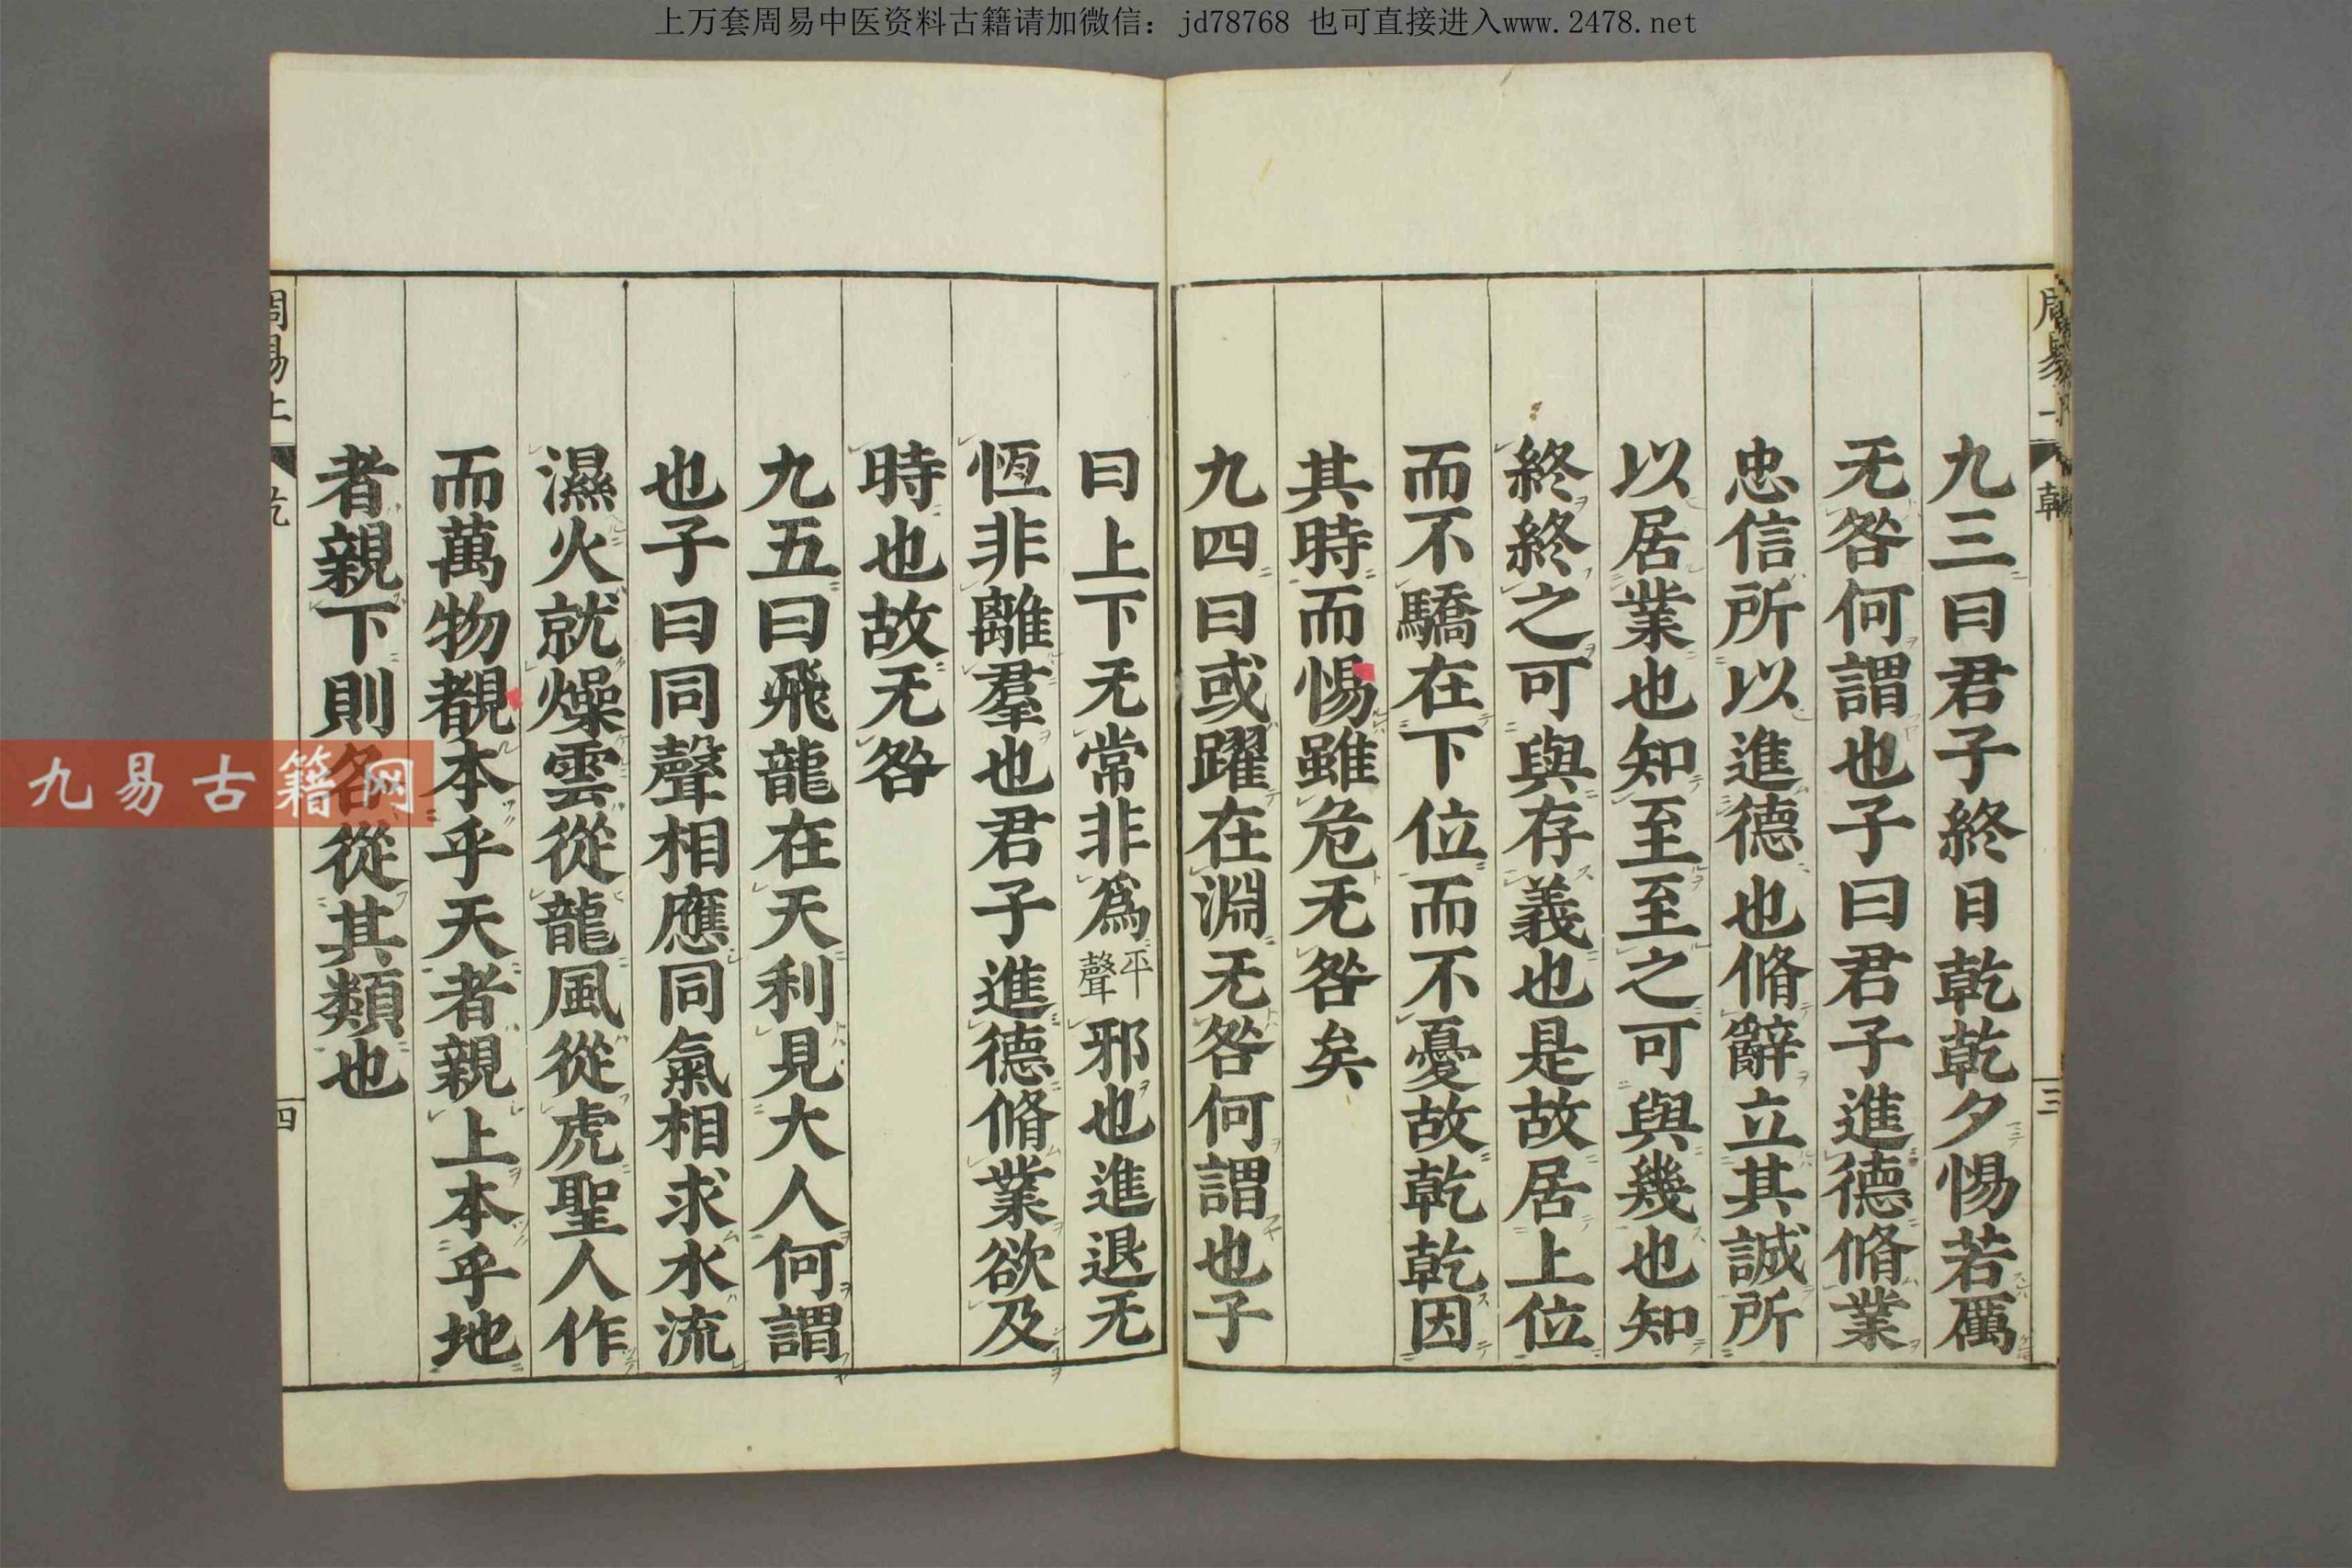 上万套周易中医资料古籍请加微信：jd78768 也可直接进入www.2478.net
九三曰君子終日乾乾夕惕若厲
无咎何謂也子曰君子進德脩業
忠信所以進德也脩辭立其誠所
以居業也知至至之可與幾也知
終終之可與存義也是故居上位
而不驕在下位而不憂故乾乾因
其時而惕雖危无咎矣
九四曰或躍在淵无咎何謂也子
曰上下无常非爲平聲邪也進退无
恆非離羣也君子進德脩業欲及
時也故无咎
九五曰飛龍在天利見大人何謂
也子曰同聲相應同氣相求水流
濕火就燥雲從龍風從虎聖人作
而萬物覩本乎天者親上本乎地
者親下則各從其類也
周易上 乾 四
九易古籍网